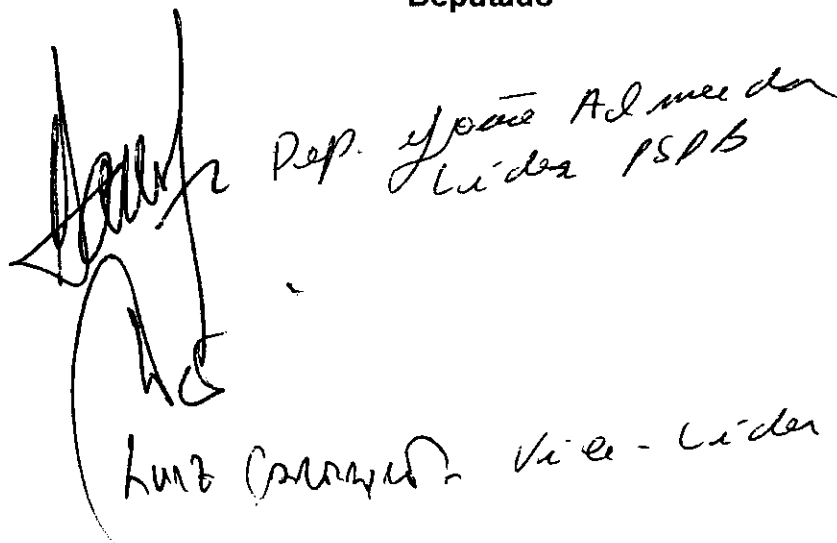 Deputado
Dep. João Almeida
Líder PSDB
Luiz Vice-Líder